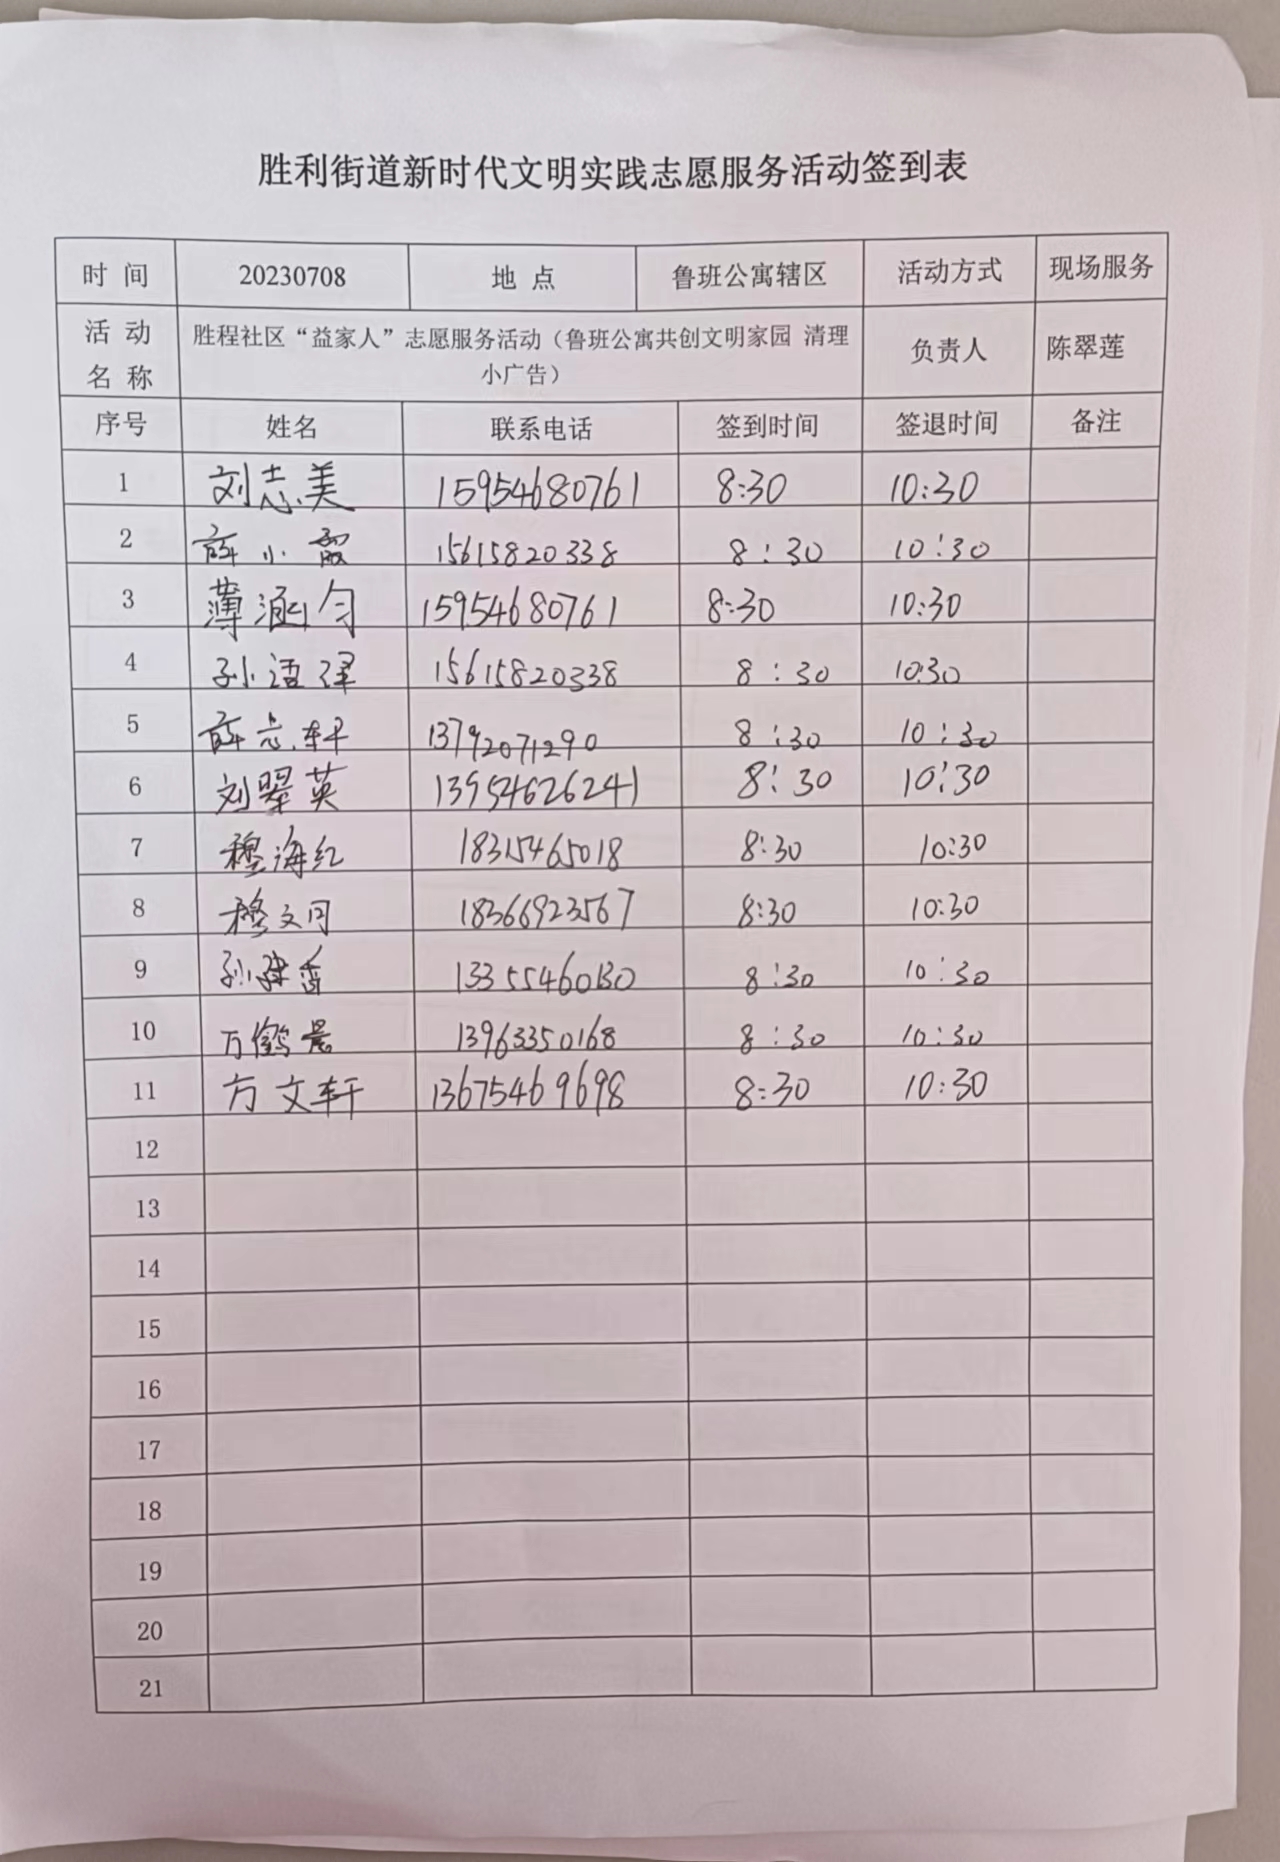 胜利街道新时代文明实践志愿服务活动签到表
时 间 20230708 地 点 鲁班公寓辖区 活动方式 现场服务
活 动 名 称 胜程社区“益家人”志愿服务活动（鲁班公寓共创文明家园 清理小广告） 负责人 陈翠莲
序号 姓名 联系电话 签到时间 签退时间 备注
1 刘志美 15954680761 8:30 10:30
2 薛小霞 15615820338 8:30 10:30
3 薄涵匀 15954680761 8:30 10:30
4 孙语泽 15615820338 8:30 10:30
5 薛志轩 13792071290 8:30 10:30
6 刘翠英 13954626241 8:30 10:30
7 穆海红 18315465018 8:30 10:30
8 穆文月 18366923567 8:30 10:30
9 孙建香 13355460130 8:30 10:30
10 万鹤晨 13963350168 8:30 10:30
11 方文轩 13675469698 8:30 10:30
12
13
14
15
16
17
18
19
20
21